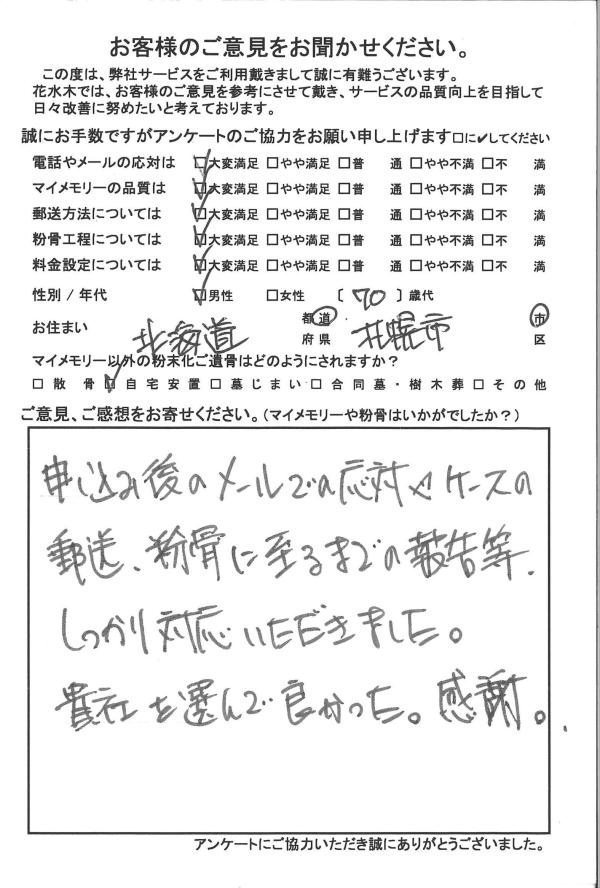 お客様のご意見をお聞かせください。
この度は、弊社サービスをご利用戴きまして誠に有難うございます。
花水木では、お客様のご意見を参考にさせて戴き、サービスの品質向上を目指して
日々改善に努めたいと考えております。
誠にお手数ですがアンケートのご協力をお願い申し上げます□に✓してください
電話やメールの応対は ☑大変満足 □やや満足 □普 通 □やや不満 □不 満
マイメモリーの品質は ☑大変満足 □やや満足 □普 通 □やや不満 □不 満
郵送方法については ☑大変満足 □やや満足 □普 通 □やや不満 □不 満
粉骨工程については ☑大変満足 □やや満足 □普 通 □やや不満 □不 満
料金設定については ☑大変満足 □やや満足 □普 通 □やや不満 □不 満
性別/年代 ☑男性 □女性 〔 70 〕歳代
お住まい 北海道 都道・府県 札幌市 市区
マイメモリー以外の粉末化ご遺骨はどのようにされますか?
□散骨 ☑自宅安置 □墓じまい □合同墓・樹木葬 □その他
ご意見、ご感想をお寄せください。(マイメモリーや粉骨はいかがでしたか?)
申し込み後のメールでの応対やケースの
郵送、粉骨に至るまでの報告等、
しっかり対応いただきました。
貴社を選んで良かった。感謝。
アンケートにご協力いただき誠にありがとうございました。